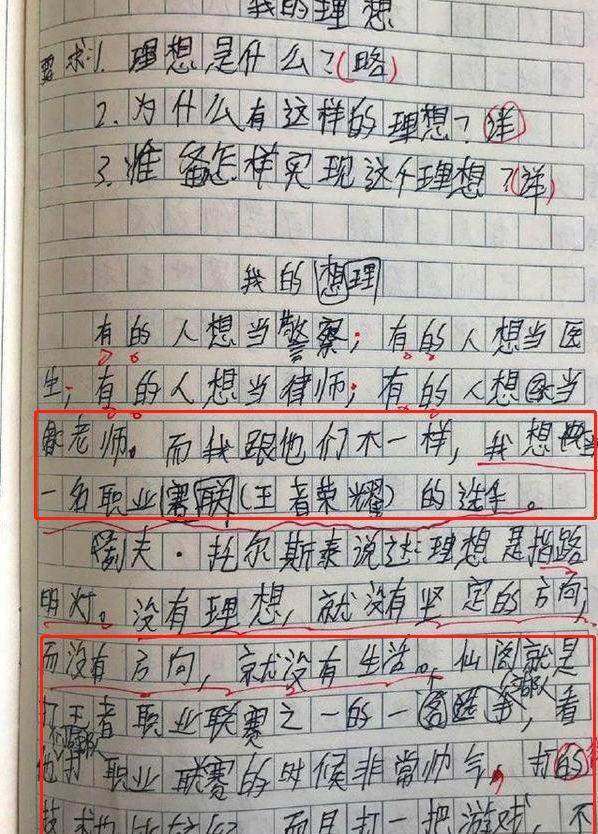 我的理想
要求:1.理想是什么?(略)
2.为什么有这样的理想?(详)
3.准备怎样实现这个理想?(详)
我的想理
有的人想当警察;有的人想当医
生;有的人想当律师;有的人想当
老师。而我跟他们不一样,我想当
一名职业赛联(王者荣耀)的选手。
列夫·托尔斯泰说过:理想是指路
明灯。没有理想,就没有坚定的方向;
而没有方向,就没有生活。仙阁就是
打王者职业联赛之一的一名选手,看
他打职业联赛的时候非常帅气,打的
技术也比较好,而且打一把游戏,不